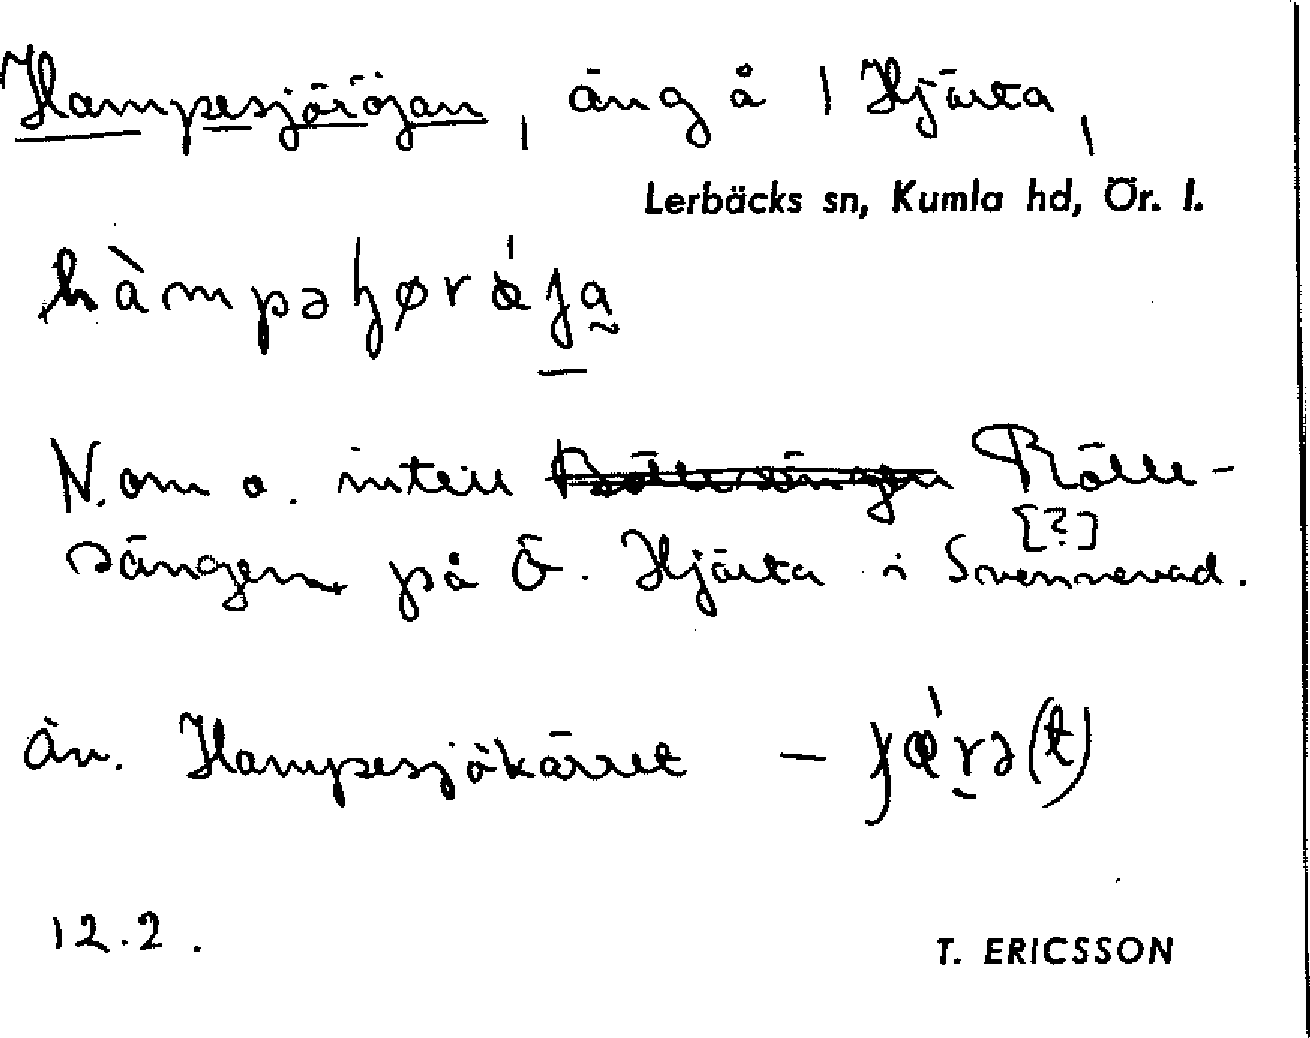 Hampesjöröjan, äng å 1 Hjärta,
Lerbäcks sn, Kumla hd, Ör. l.
N. om o. intill Rälle-
[?]
sängen på Ö. Hjärta i Svennevad.
Än. Hampesjökärret –
12.2.
T. ERICSSON